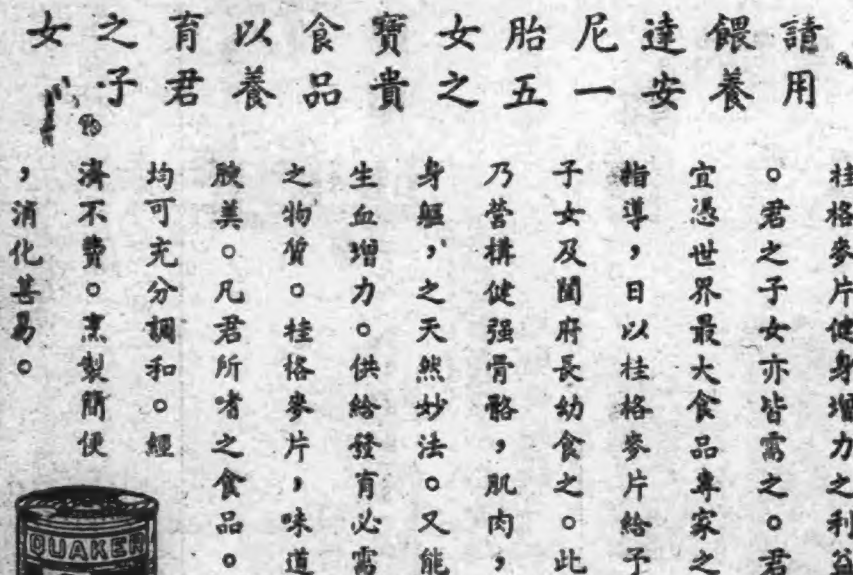 請用
餵養
達安
尼一
胎五
女之
寶貴
食品
以養
育君
之子
女
桂格麥片健身增力之利益
。君之子女亦皆需之。君
宜憑世界最大食品專家之
指導，日以桂格麥片給予
子女及闔府長幼食之。此
乃營構健强骨骼，肌肉，
身軀，之天然妙法。又能
生血增力。供給發育必需
之物質。桂格麥片，味道
腴美。凡君所嗜之食品。
均可充分調和。經
濟不費。烹製簡便
，消化甚易。
QUAKER